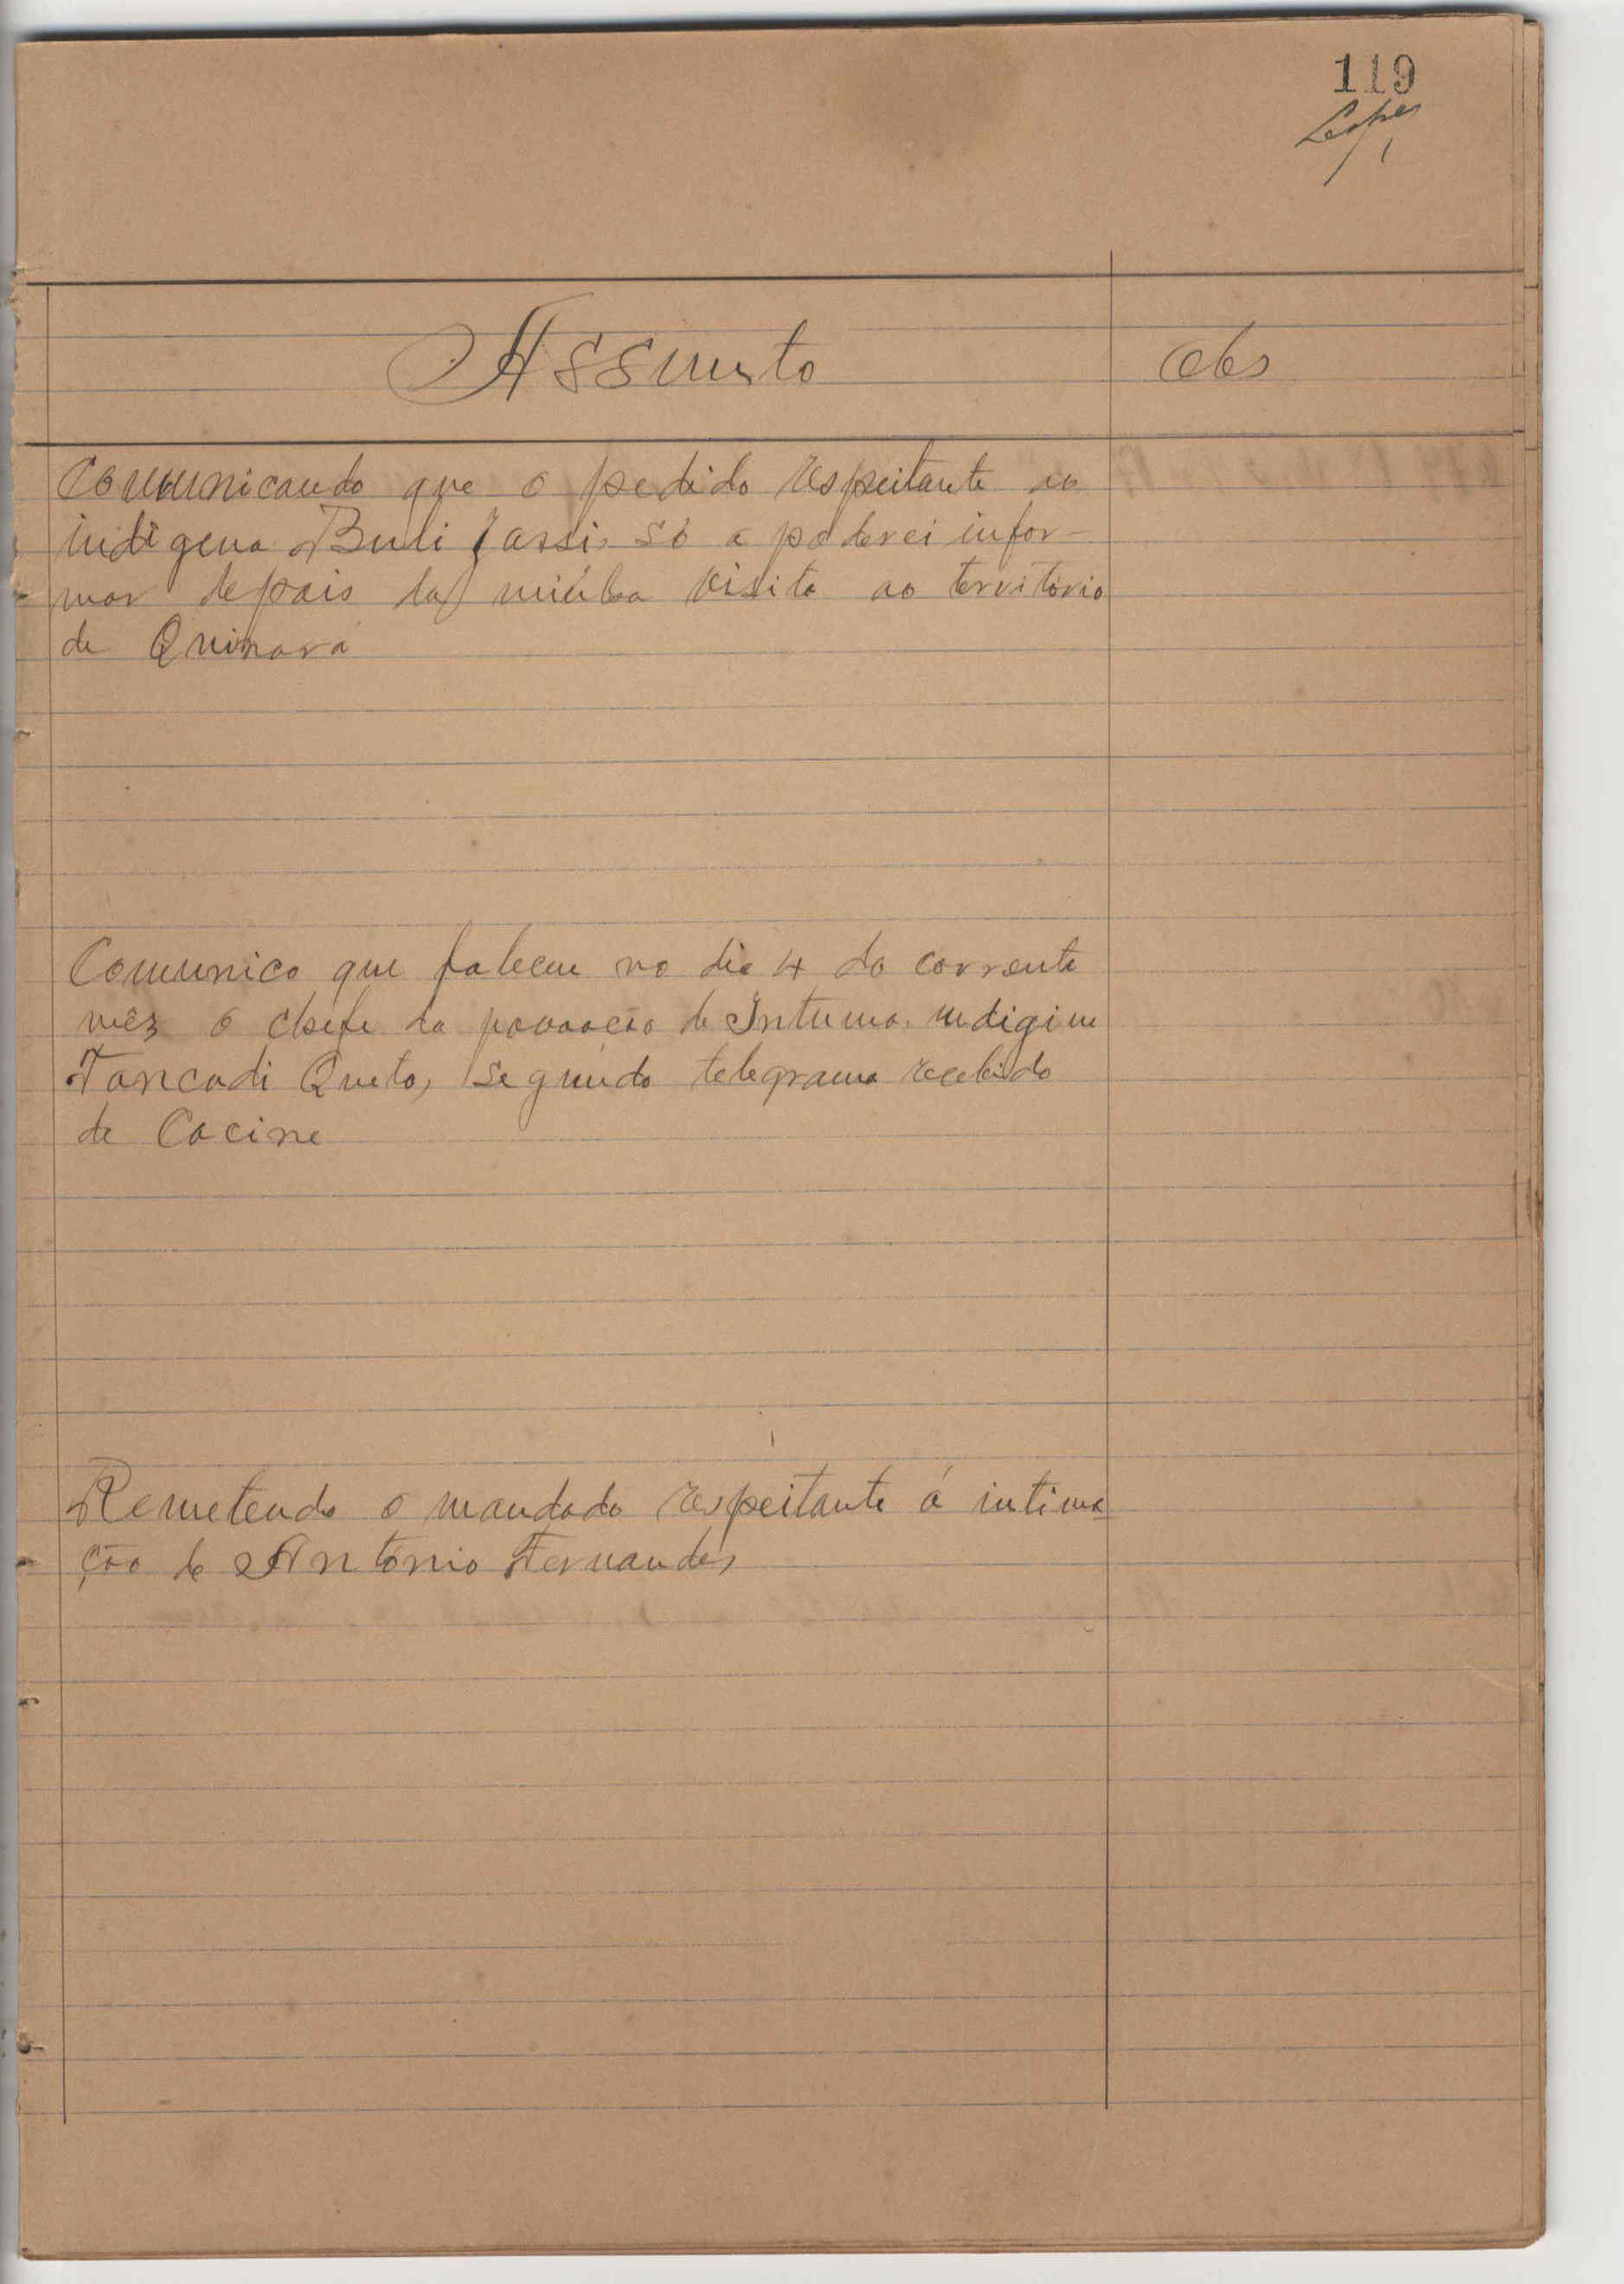 119
Lopes
Assunto
Obs
Comunicando que o pedido respeitante ao
indigena Buli Jassi, só a poderei infor-
mar depois da minha visita ao territorio
de Quinará
Comunico que faleceu no dia 4 do corrente
mês o chefe da povoação de Intuma, indigina
Tancadi Queta, segundo telegrama recebido
de Cacine
Remetendo o mandado respeitante á intima
ção de António Fernandes